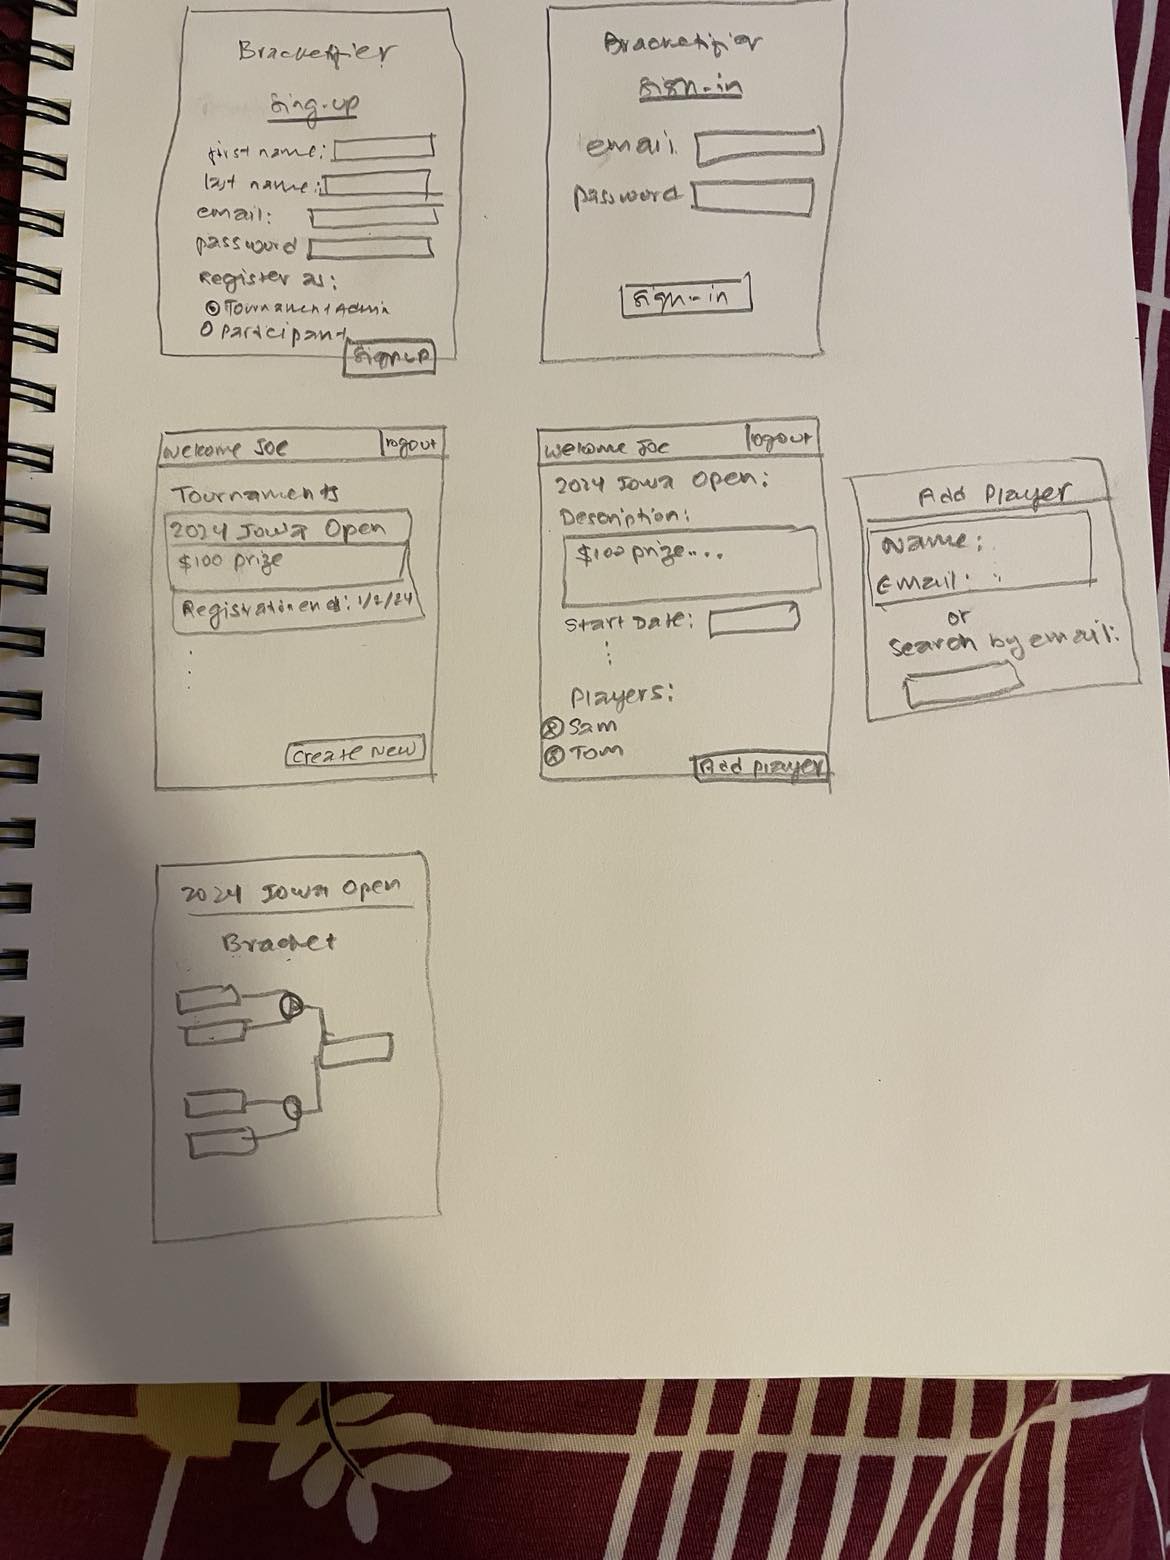 Bracketifier
Sing-up
first name:
last name:
email:
password
Register as:
Tournament Admin
Participant
Signup
Bracketifier
Sign-in
email
password
Sign-in
Welcome Joe
logout
Tournaments
2024 Iowa Open
$100 prize
Registration end: 1/2/24
Create New
Welcome Joe
logout
2024 Iowa Open:
Description:
$100 prize....
Start Date:
Players:
Sam
Tom
Add player
Add Player
Name:
Email:
or
Search by email:
2024 Iowa Open
Bracket